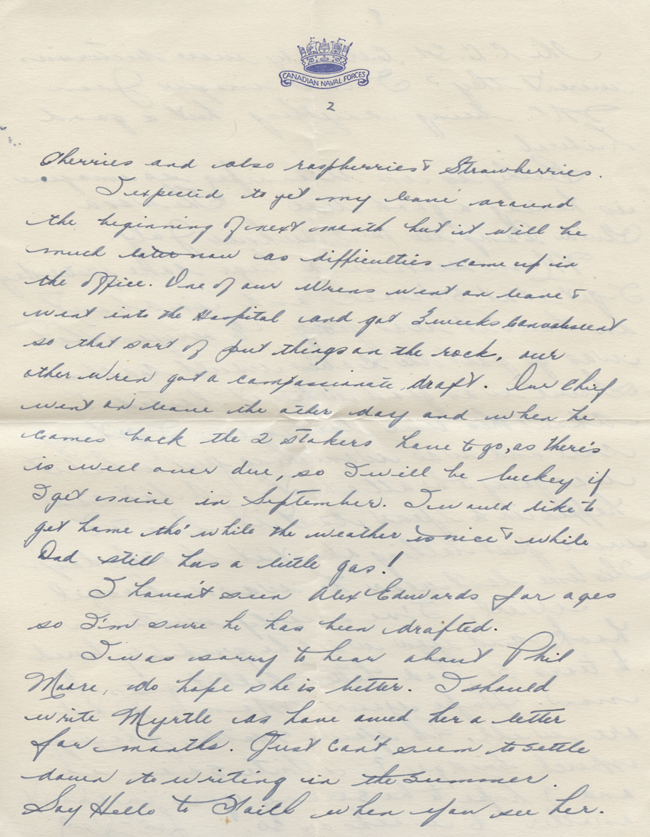 CANADIAN NAVAL FORCES
2
Cherries and also raspberries & Strawberries.
I expected to get my leave around
the beginning of next month but it will be
much later now as difficulties came up in
the office. One of our Wrens went on leave &
went into the Hospital and got 3 weeks convalescent
so that sort of put things on the rock, our
other Wren got a compassionate draft. Our Chief
went on leave the other day and when he
comes back the 2 Stokers have to go, as theirs
is well over due, so I will be luckey if
I get mine in September. I would like to
get home tho' while the weather is nice & while
Dad still has a little gas!
I haven't seen Alex Edwards for ages
so I'm sure he has been drafted.
I was sorry to hear about Phil
Moore, do hope she is better. I should
write Myrtle as have owed her a letter
for months. Just can't seem to settle
down to writing in the summer.
Say Hello to when you see her.